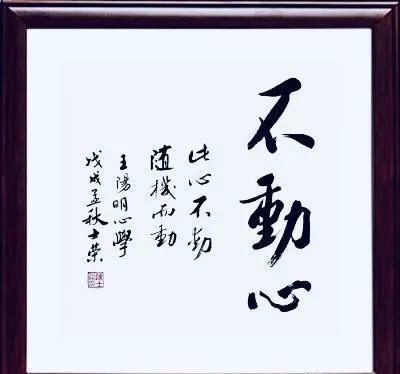 不動心
此心不動
隨機而動
王陽明心學
戊戌孟秋士榮